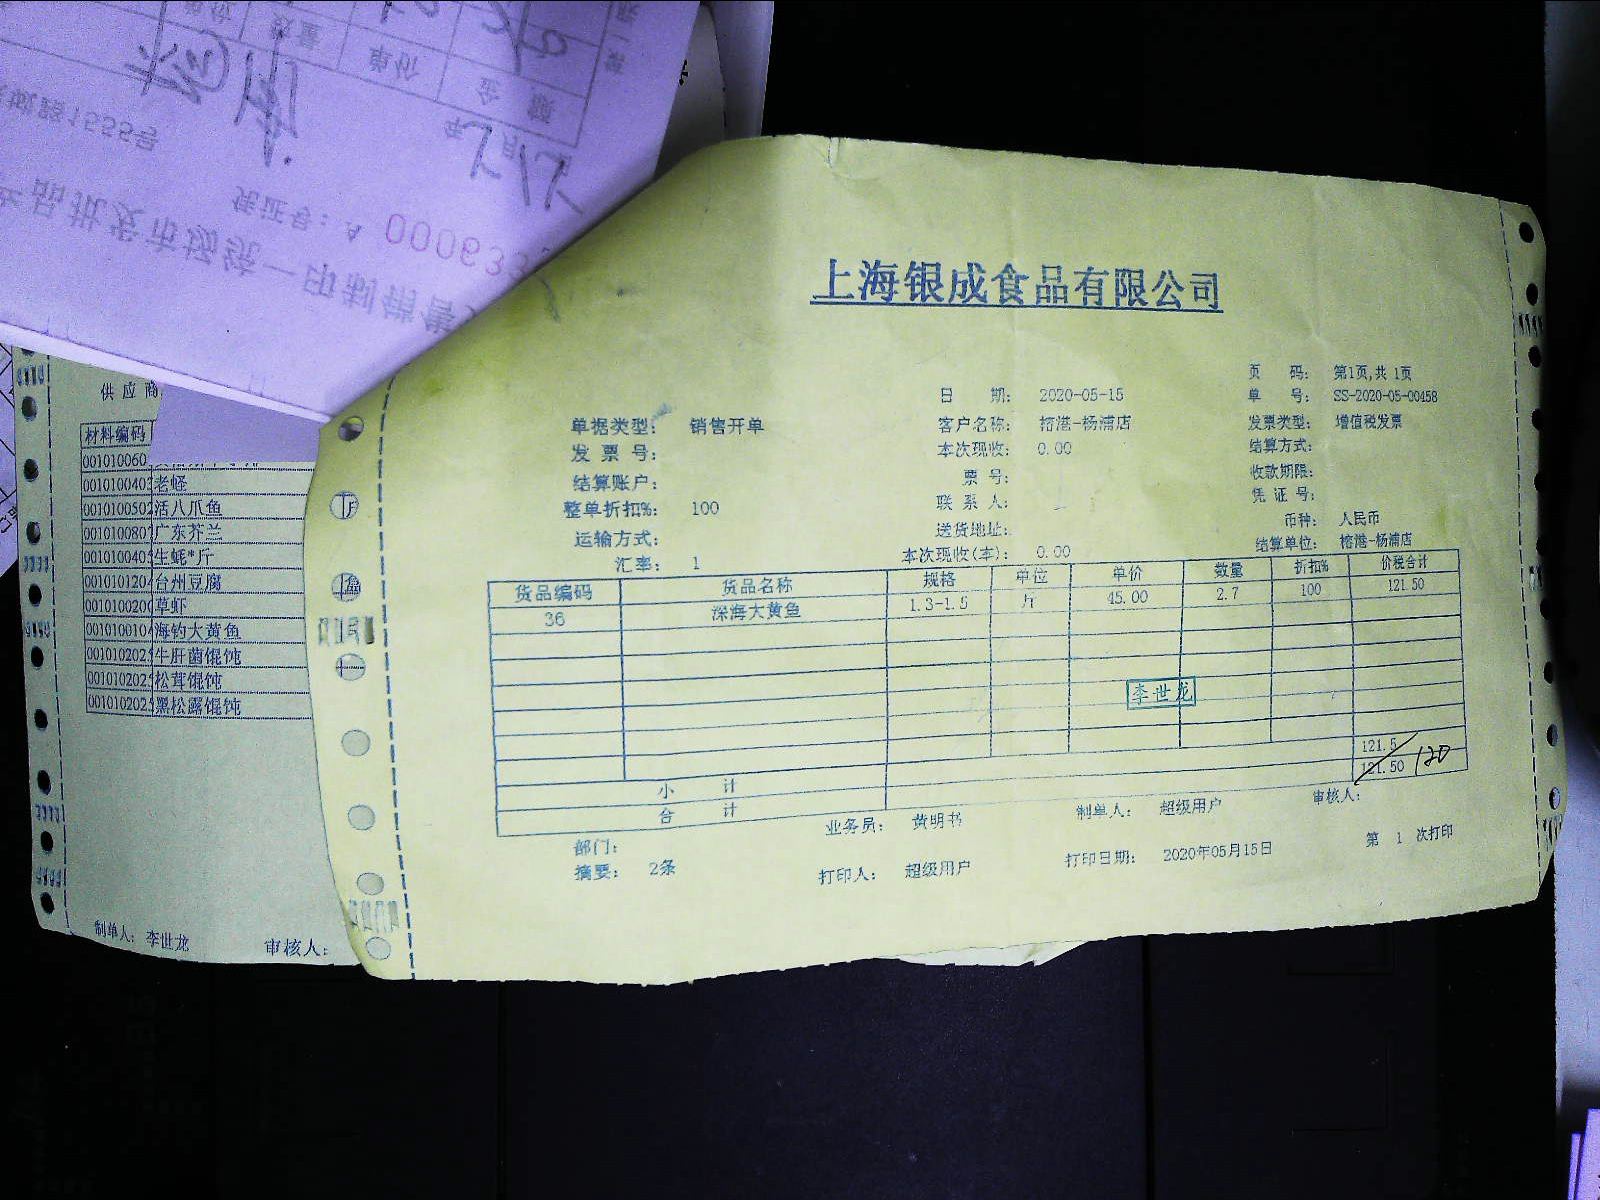 上海银成食品有限公司
页 码: 第1页,共 1页
日 期: 2020-05-15 单 号: SS-2020-05-00458
单据类型: 销售开单 客户名称: 榕港-杨浦店 发票类型: 增值税发票
发 票 号: 本次现收: 0.00 结算方式:
结算账户: 票 号: 收款期限:
整单折扣%: 100 联 系 人: 凭 证 号:
运输方式: 送货地址: 币种: 人民币
汇率: 1 本次现收(本): 0.00 结算单位: 榕港-杨浦店
货品编码 货品名称 规格 单位 单价 数量 折扣% 价税合计
36 深海大黄鱼 1.3-1.5 斤 45.00 2.7 100 121.50
李世龙
小 计 121.5
合 计 121.50 120
业务员: 黄明书 制单人: 超级用户 审核人:
部门:
摘要: 2条 打印人: 超级用户 打印日期: 2020年05月15日 第 1 次打印
供 应 商
材料编码
001010060
001010040 老蛏
001010050 活八爪鱼
001010080 广东芥兰
001010040 生蚝*斤
001010120 台州豆腐
001010020 草虾
001010010 海钓大黄鱼
001010202 牛肝菌馄饨
001010202 松茸馄饨
001010202 黑松露馄饨
制单人: 李世龙 审核人:
品批发市场统一印制销售
凭证号: A 000633
路1555号
年 月
数量 单价 金 额